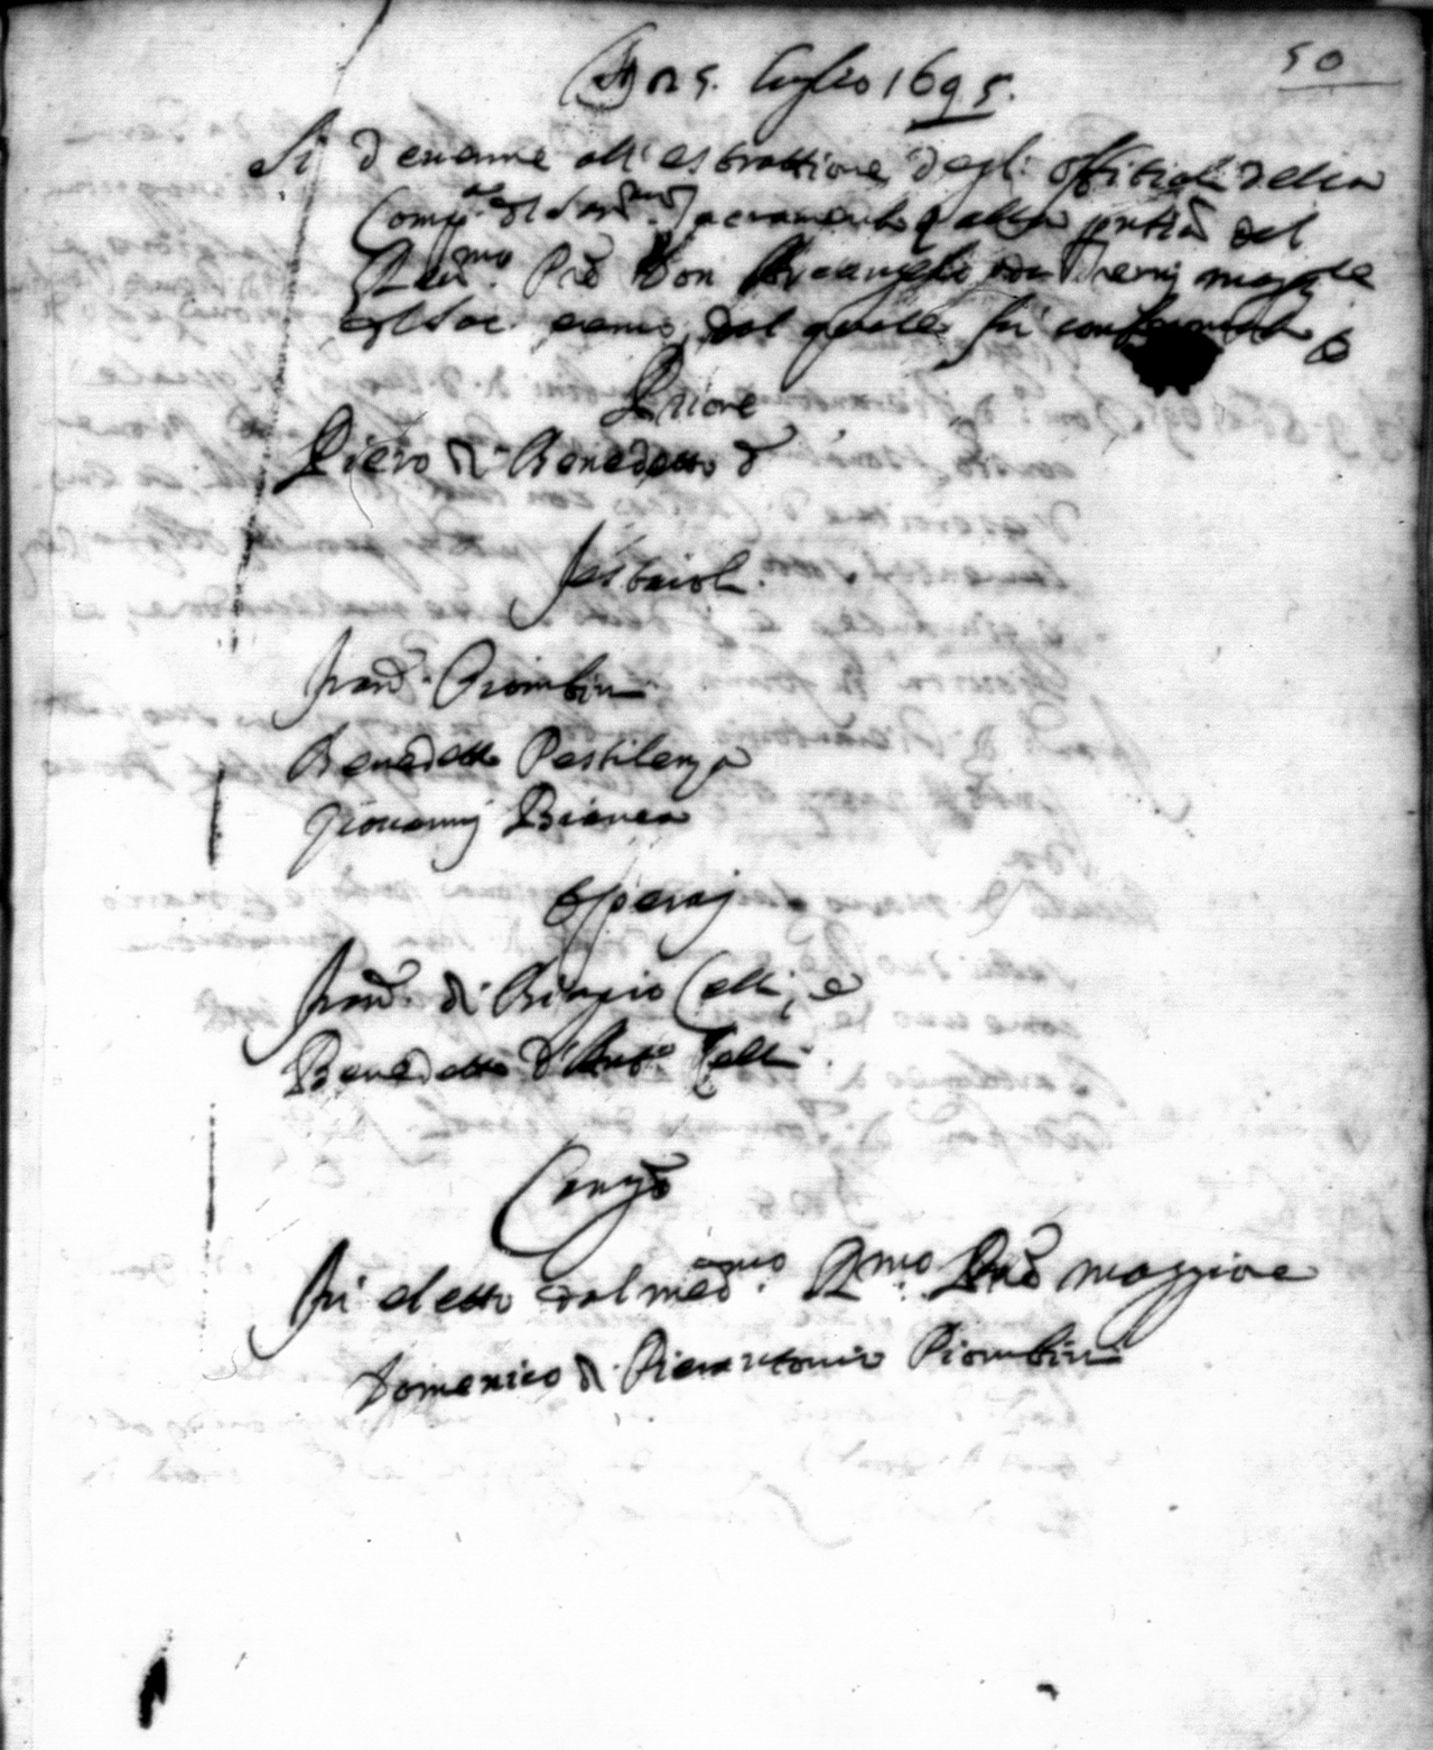 50
A dì 25. luglio 1695.
Si devenne all'estrattione degli offitiali della
Comp.a del Sant.mo Sacramento alla pntia del
Rev.mo Prē Don Arcangelo da maggre
dal quale fu
Priore
Piero di Benedetto
festaioli
Franc.o Piombini
Benedetto Pestilenza
Giovannj Bianca
Operaj
Franc.o di Biagio Celli, e
Benedetto d'Ant.o Celli
Camgō
Fu eletto dal med.amo R.mo Prē maggiore
Domenico di Pierantonio Piombini